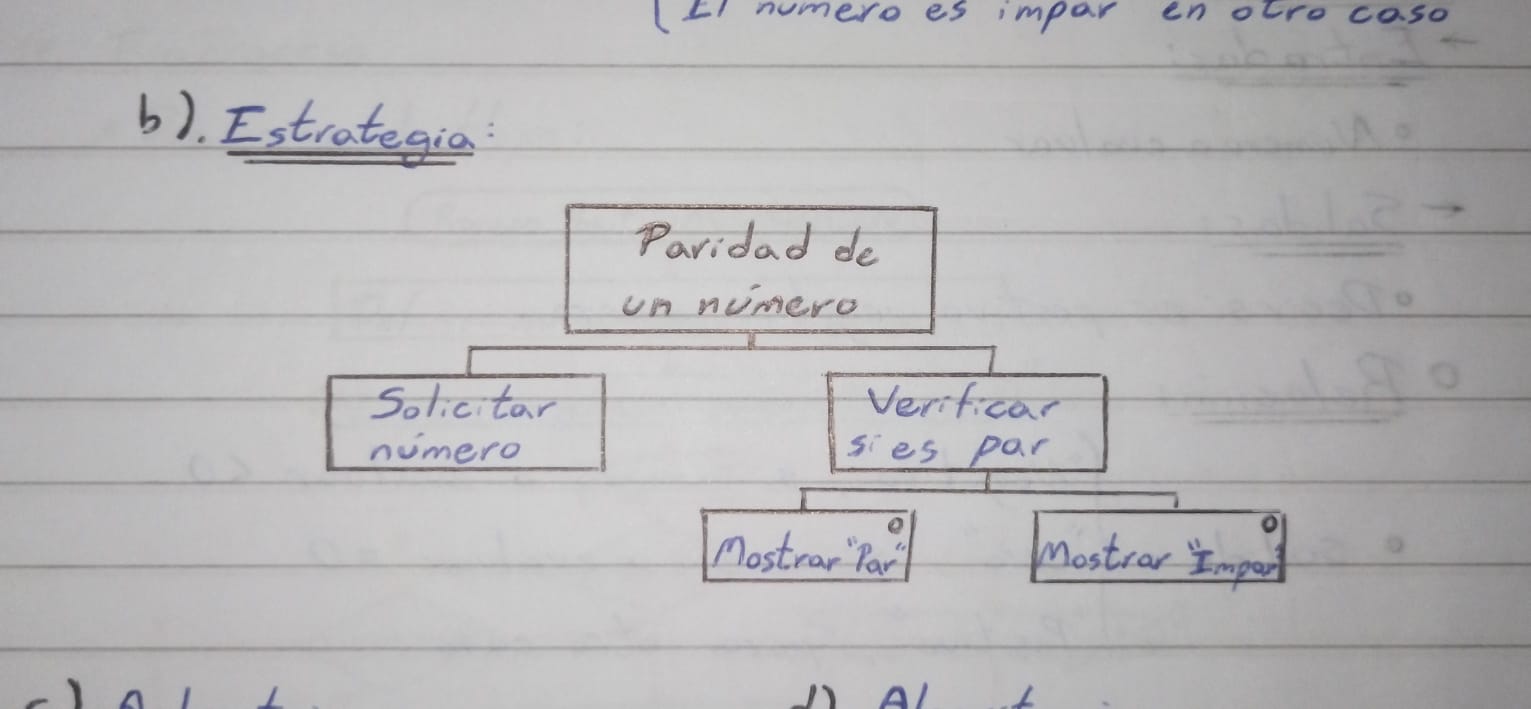 El numero es impar en otro caso
b). Estrategia:
Paridad de
un número
Solicitar
número
Verificar
si es par
Mostrar "Par"
Mostrar "Impar"
c)
d)